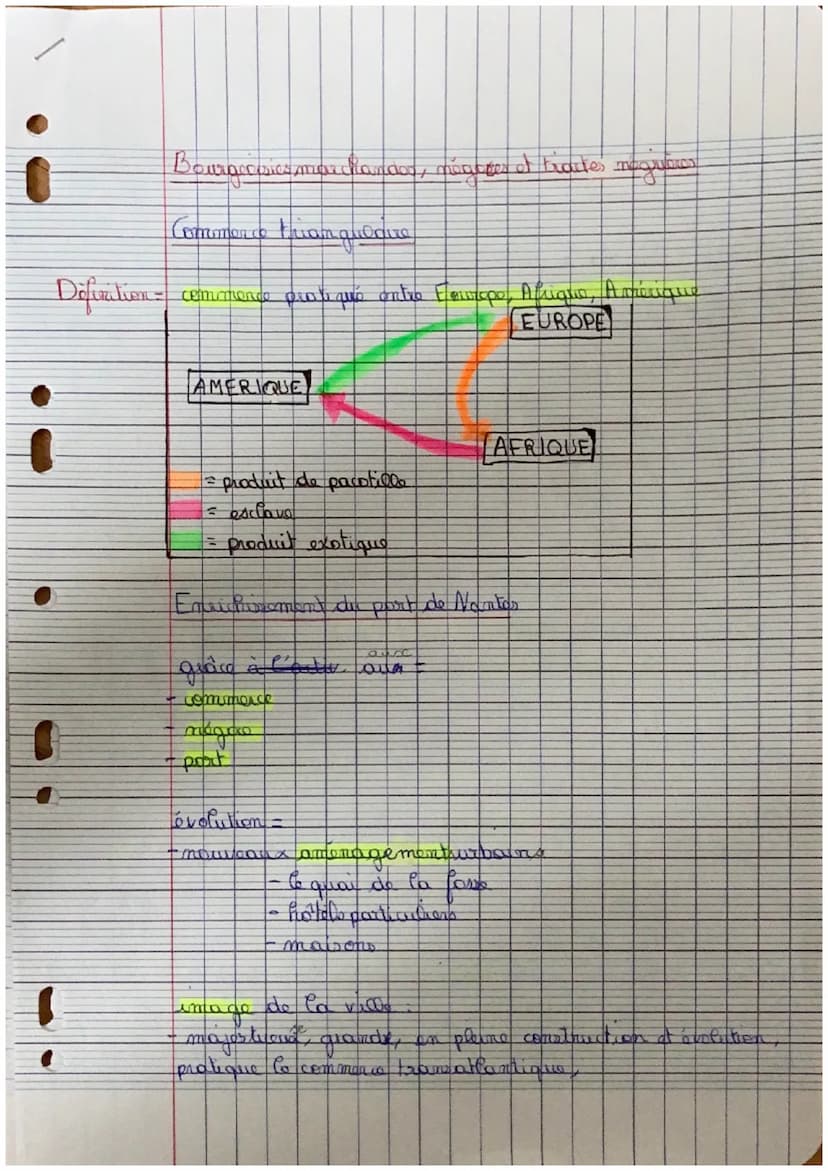 Bourgeoisies marchandes, négoces et traites négrières
Commerce triangulaire
Définition = commerce pratiqué entre Europe, Afrique, Amérique
EUROPE
AMERIQUE
AFRIQUE
= produit de pacotille
= esclave
= produit exotique
Enrichissement du port de Nantes
avec
grâce à aux =
- commerce
- négoce
- port
évolution =
- nouveaux aménagement urbains
- le quai de la fosse
- hôtels particuliers
- maisons
image de la ville :
- majestueuse, grande, en pleine construction et évolution,
pratique le commerce transatlantique,